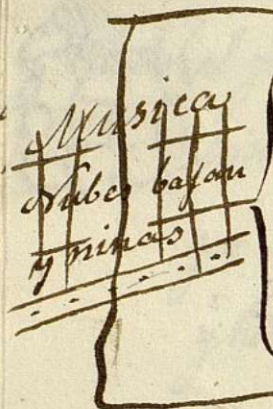 Musica
Nubes bajan
y ninas